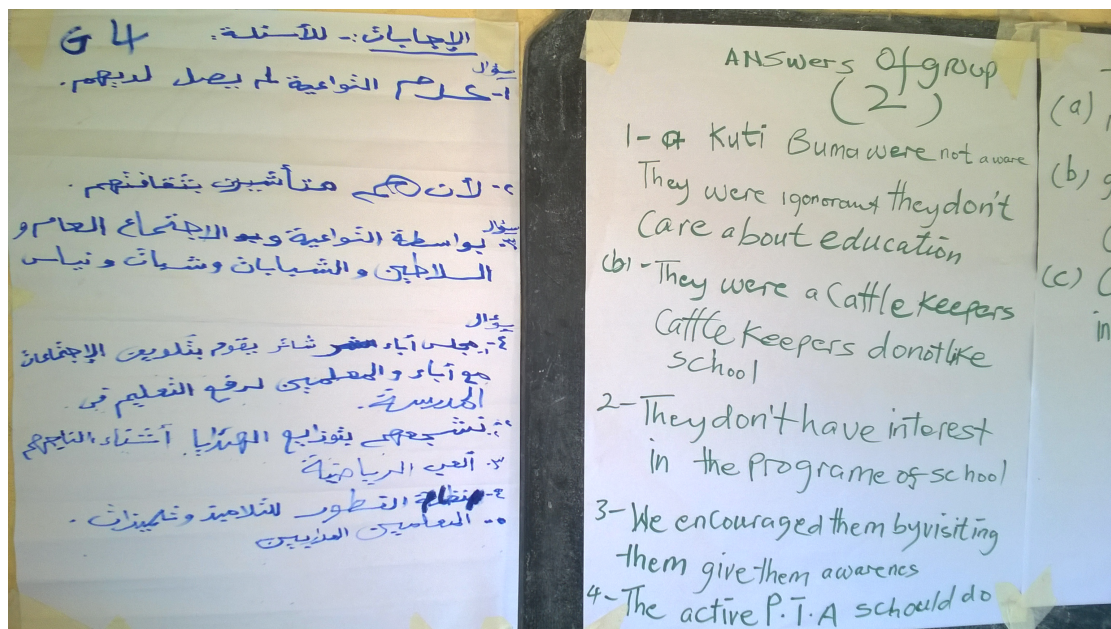 G4 الإجابات :- للأسئلة:
سؤال
١- عدم التواعية لم يصل لديهم.
٢- لأن هم متأثيرين بثقافتهم.
سؤال
٣- بواسطة التواعية وبو الاجتماع العام و
السلاطين والشبابات وشبات و نياس
سؤال
٤- مجلس آباء شائر يقوم بتلوين الإجتماعات
مع آباء والمعلمين لرفع التعليم في
المدرسة.
٢- تشجعهم بتوزايع الهدايا أثناء الناجحهم
٣- ألعب الرياضية
٤- نظام الفطور للتلاميذ وتلميذات.
٥- المعلمين المدربين
ANSWERS Of group
(2)
1- a Kuti Buma were not aware
They were igonorant they don't
Care about education
(b)- They were a Cattle keepers
Cattle keepers donot like
school
2- They don't have interest
in the programe of school
3- We encouraged them by visiting
them give them awarenes
4- The active P.T.A schould do
(a)
(b)
(c)
in